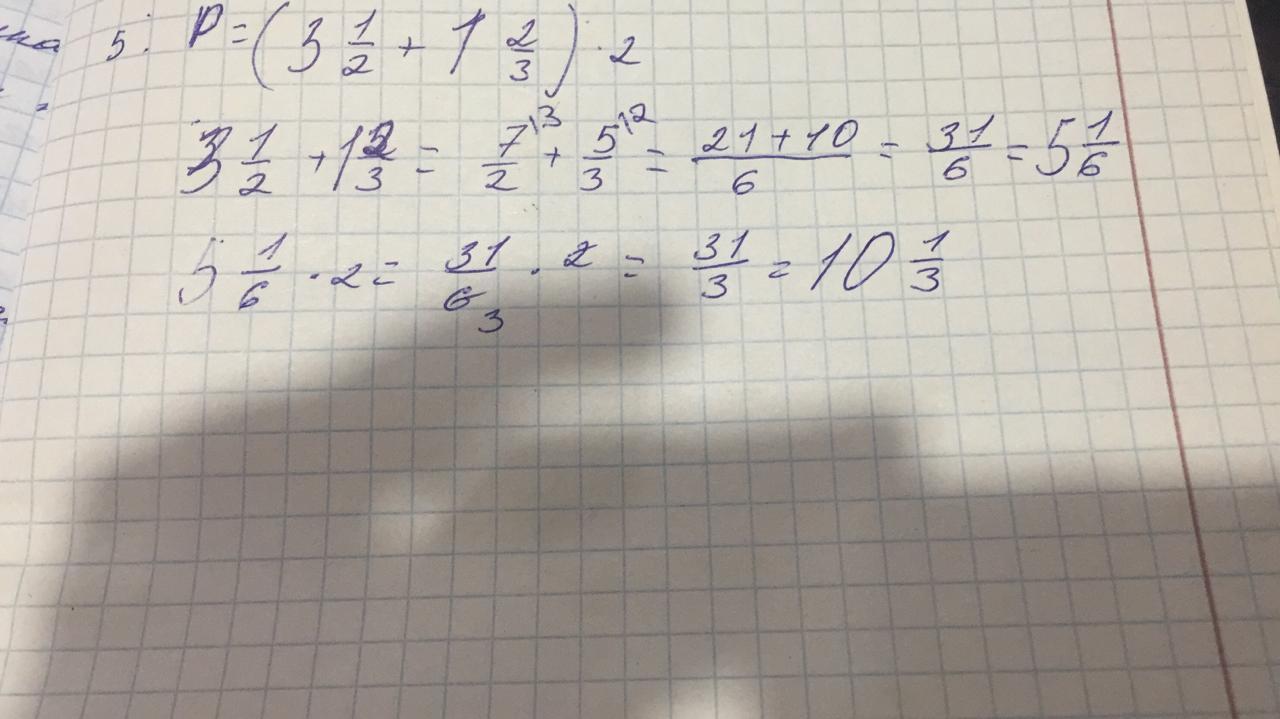 5. P = (3 1/2 + 1 2/3) · 2
3 1/2 + 1 2/3 = 7\3/2 + 5\2/3 = 21+10/6 = 31/6 = 5 1/6
5 1/6 · 2 = 31/6 3 · 2 = 31/3 = 10 1/3